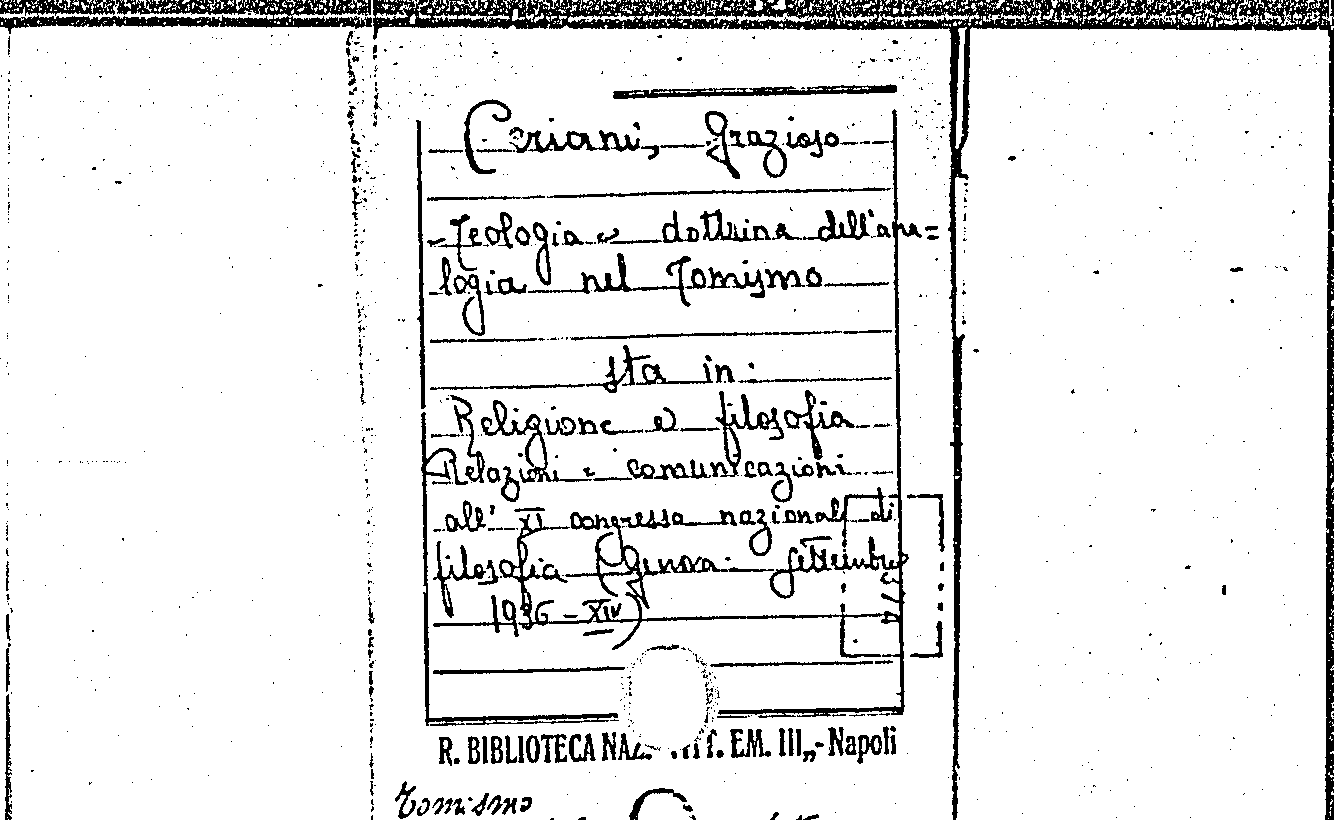 Ceriani, Grazioso
Teologia e dottrina dell'ana=
logia nel Tomismo
sta in:
Religione e filosofia
Relazioni e comunicazioni
all' XI congresso nazionale di
filosofia (Genova - settembre
1936 - XIV)
R. BIBLIOTECA NAZ. EM. III„- Napoli
Tomismo